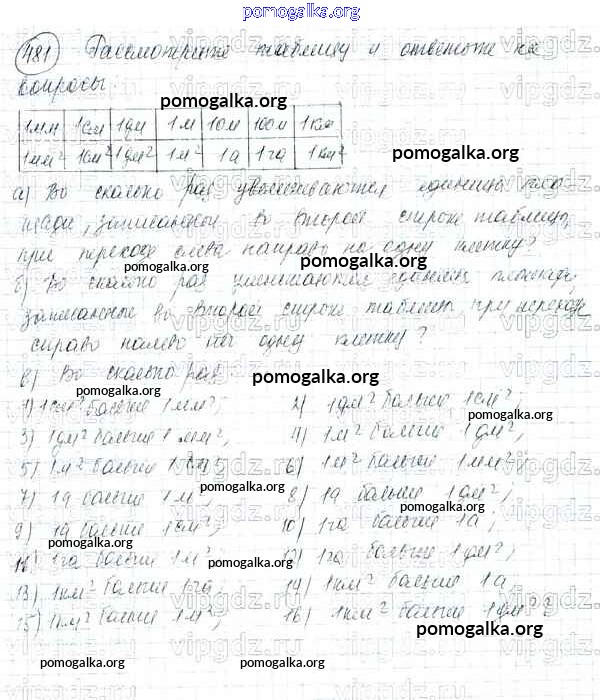 pomogalka.org
481 Рассмотрите таблицу и ответьте на
вопросы:
pomogalka.org
1мм 1см 1дм 1м 10м 100м 1км
1мм² 1см² 1дм² 1м² 1а 1га 1км²
pomogalka.org
а) Во сколько раз увеличиваются единицы пло
щади, записанные во второй строке таблицы,
при переходе слева направо на одну клетку?
pomogalka.org
б) Во сколько раз уменьшаются единицы площади,
записанные во второй строке таблицы при переходе
справо налево на одну клетку?
в) Во сколько раз
pomogalka.org
pomogalka.org
1) 1см² больше 1мм²; 2) 1дм² больше 1см²;
pomogalka.org
3) 1дм² больше 1мм²; 4) 1м² больше 1дм²;
5) 1м² больше 1см²; 6) 1м² больше 1мм²;
pomogalka.org
7) 1а больше 1м²; 8) 1а больше 1дм²;
pomogalka.org
9) 1а больше 1см²; 10) 1га больше 1а;
11) 1га больше 1м²; 12) 1га больше 1дм²;
pomogalka.org
13) 1км² больше 1га; 14) 1км² больше 1а
15) 1км² больше 1м²; 16) 1км² больше 1дм²?
pomogalka.org
pomogalka.org
pomogalka.org
vipgdz.ru